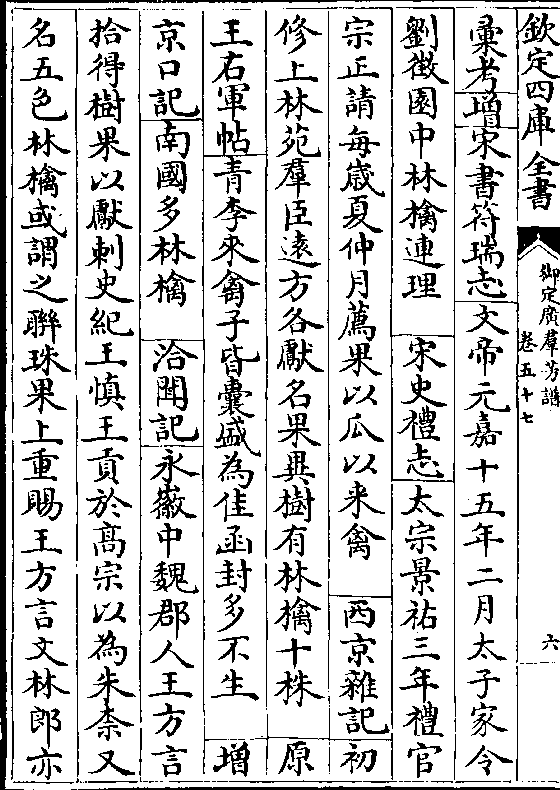 欽定四庫全書
御定廣羣芳譜
卷五十七
六
彙考增宋書符瑞志文帝元嘉十五年二月太子家令
劉徴園中林檎連理 宋史禮志太宗景祐三年禮官
宗正請每歲夏仲月薦果以瓜以来禽 西京雜記初
修上林苑羣臣遠方各獻名果異樹有林檎十株 原
王右軍帖青李來禽子皆囊盛為佳函封多不生 增
京口記南國多林檎 洽聞記永徽中魏郡人王方言
拾得樹果以獻刺史紀王慎王貢於髙宗以為朱柰又
名五色林檎或謂之聨珠果上重賜王方言文林郎亦